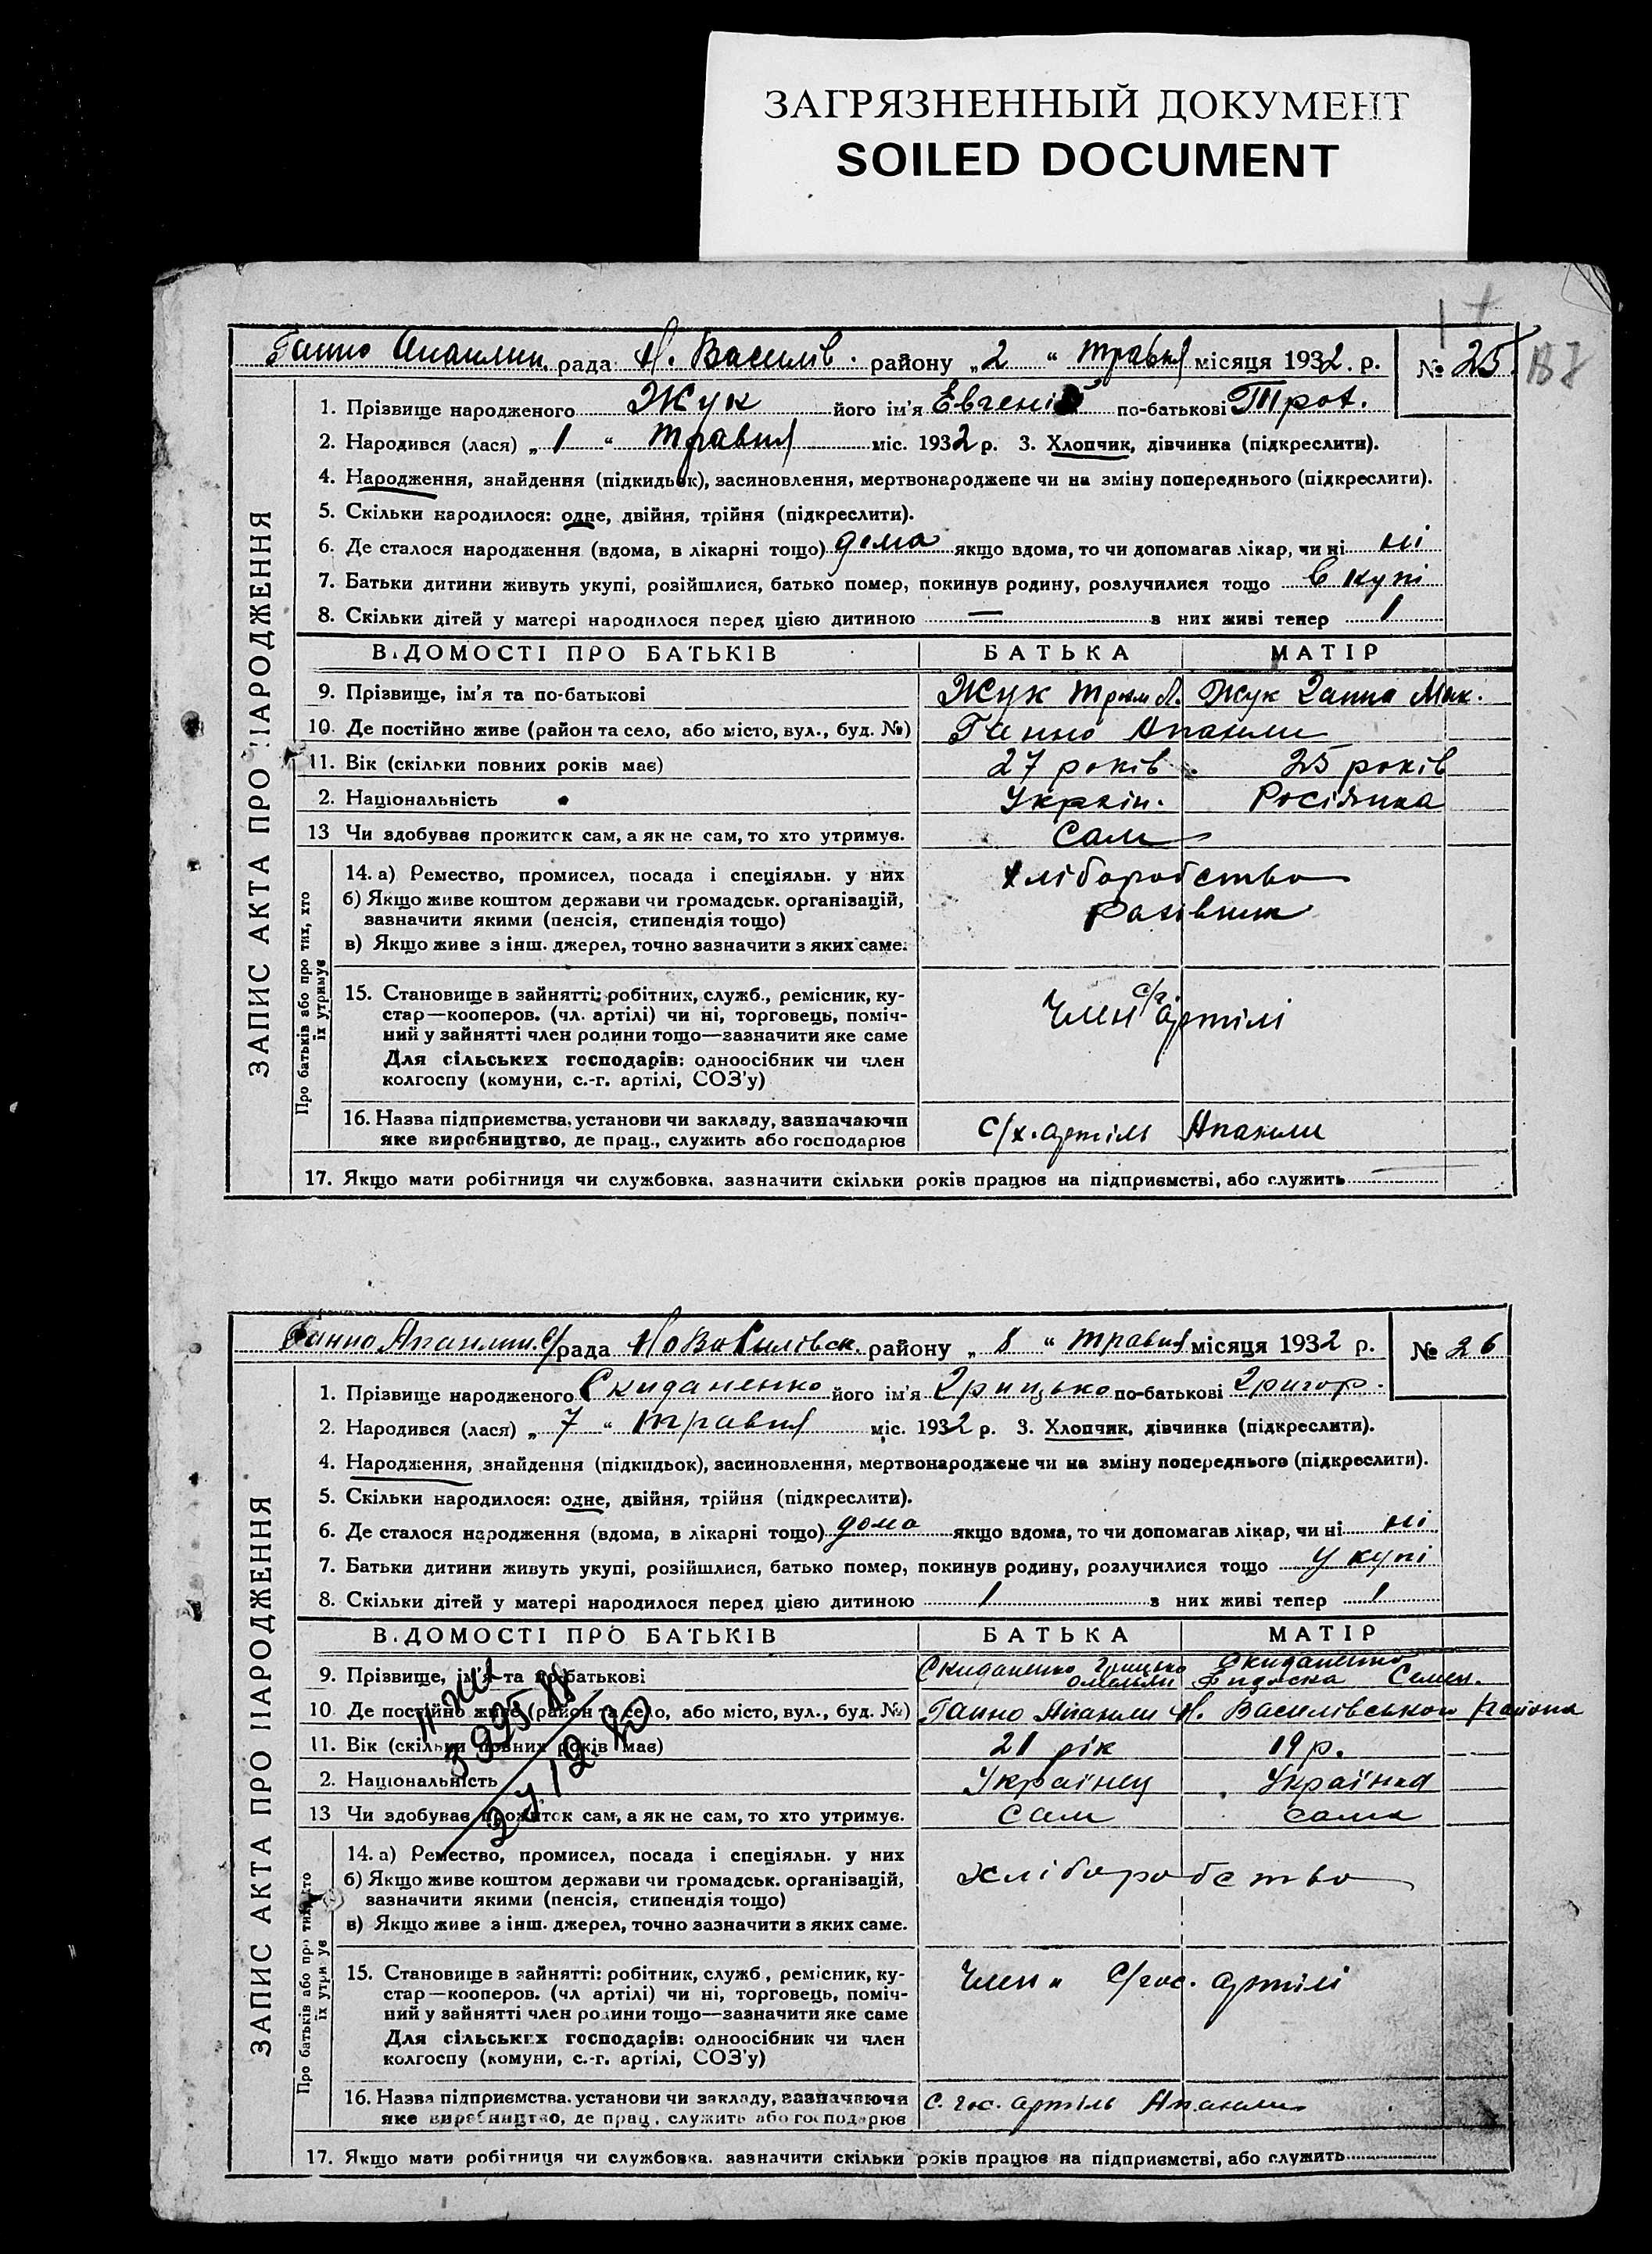 ЗАГРЯЗНЕННЫЙ ДОКУМЕНТ
SOILED DOCUMENT
ЗАПИС АКТА ПРО НАРОДЖЕННЯ
Ганно рада Н. Василів. району „2 " травня місяця 1932. р. № 25.
1. Прізвище народженого Жук його ім'я Евгеній по-батькові Трох.
2. Народився (лася) „1 " травня міс. 1932 р. 3. Хлопчик, дівчинка (підкреслити).
4. Народження, знайдення (підкидьок), засиновлення, мертвонароджене чи на зміну попереднього (підкреслити).
5. Скільки народилося: одне, двійня, трійня (підкреслити).
6. Де сталося народження (вдома, в лікарні тощо) дома якщо вдома, то чи допомагав лікар, чи ні ні
7. Батьки дитини живуть укупі, розійшлися, батько помер, покинув родину, розлучилися тощо в купі
8. Скільки дітей у матері народилося перед цією дитиною — з них живі тепер 1
ВІДОМОСТІ ПРО БАТЬКІВ БАТЬКА МАТІР
9. Прізвище, ім'я та по-батькові Жук Жук Ганна Мик.
10. Де постійно живе (район та село, або місто, вул., буд. №)
11. Вік (скільки повних років має) 27 років 25 років
2. Національність Україн. Росіянка
13 Чи здобуває прожиток сам, а як не сам, то хто утримує. Сам
Про батьків або про тих, хто їх утримує
14. а) Ремество, промисел, посада і спеціяльн. у них хліборобство
б) Якщо живе коштом держави чи громадськ. організацій,
зазначити якими (пенсія, стипендія тощо)
в) Якщо живе з інш. джерел, точно зазначити з яких саме.
15. Становище в зайнятті: робітник, служб., ремісник, ку-
стар—кооперов. (чл. артілі) чи ні, торговець, поміч- Член с/г артілі
ний у зайнятті член родини тощо—зазначити яке саме
Для сільських господарів: одноосібник чи член
колгоспу (комуни, с.-г. артілі, СОЗ'у)
16. Назва підприємства, установи чи закладу, зазначаючи
яке виробництво, де прац., служить або господарює с/х. артіль
17. Якщо мати робітниця чи службовка, зазначити скільки років працює на підприємстві, або служить
ЗАПИС АКТА ПРО НАРОДЖЕННЯ
Ганно с/рада району „ 8 " травня місяця 1932 р. № 26
1. Прізвище народженого Скиданенко його ім'я Грицько по-батькові Григор.
2. Народився (лася) „ 7 " травня міс. 1932 р. 3. Хлопчик, дівчинка (підкреслити).
4. Народження, знайдення (підкидьок), засиновлення, мертвонароджене чи на зміну попереднього (підкреслити).
5. Скільки народилося: одне, двійня, трійня (підкреслити).
6. Де сталося народження (вдома, в лікарні тощо) дома якщо вдома, то чи допомагав лікар, чи ні ні
7. Батьки дитини живуть укупі, розійшлися, батько помер, покинув родину, розлучилися тощо у купі
8. Скільки дітей у матері народилося перед цією дитиною 1 з них живі тепер 1
ВІДОМОСТІ ПРО БАТЬКІВ БАТЬКА МАТІР
9. Прізвище, ім'я та по-батькові Скиданенко Грицько Омельян Скиданенко Семен.
10 Де постійно живе (район та село, або місто, вул., буд. №) Ганно Н. Василівського района
11. Вік (скільки повних років має) 21 рік 19 р.
2. Національність Українец Українка
13 Чи здобуває прожиток сам, а як не сам, то хто утримує. сам сама
Про батьків або про тих, хто їх утримує
14. а) Ремество, промисел, посада і спеціяльн. у них
б) Якщо живе коштом держави чи громадськ. організацій, хліборобство
зазначити якими (пенсія, стипендія тощо)
в) Якщо живе з інш. джерел, точно зазначити з яких саме.
15. Становище в зайнятті: робітник, служб., ремісник, ку- Член с/гос. артілі
стар—кооперов. (чл артілі) чи ні, торговець, поміч-
ний у зайнятті член родини тощо—зазначити яке саме
Для сільських господарів: одноосібник чи член
колгоспу (комуни, с.-г. артілі, СОЗ'у)
16. Назва підприємства, установи чи закладу, зазначаючи с. гос. артіль
яке виробництво, де прац., служить або господарює
17. Якщо мати робітниця чи службовка, зазначити скільки років працює на підприємстві, або служить